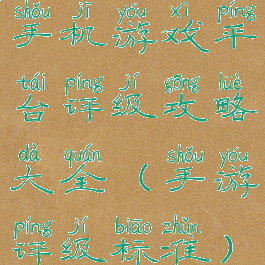 shǒu jī yóu xì píng
手机游戏平
tái píng jí gōng lüè
台评级攻略
dà quán shǒu yóu
大全（手游
píng jí biāo zhǔn
评级标准）